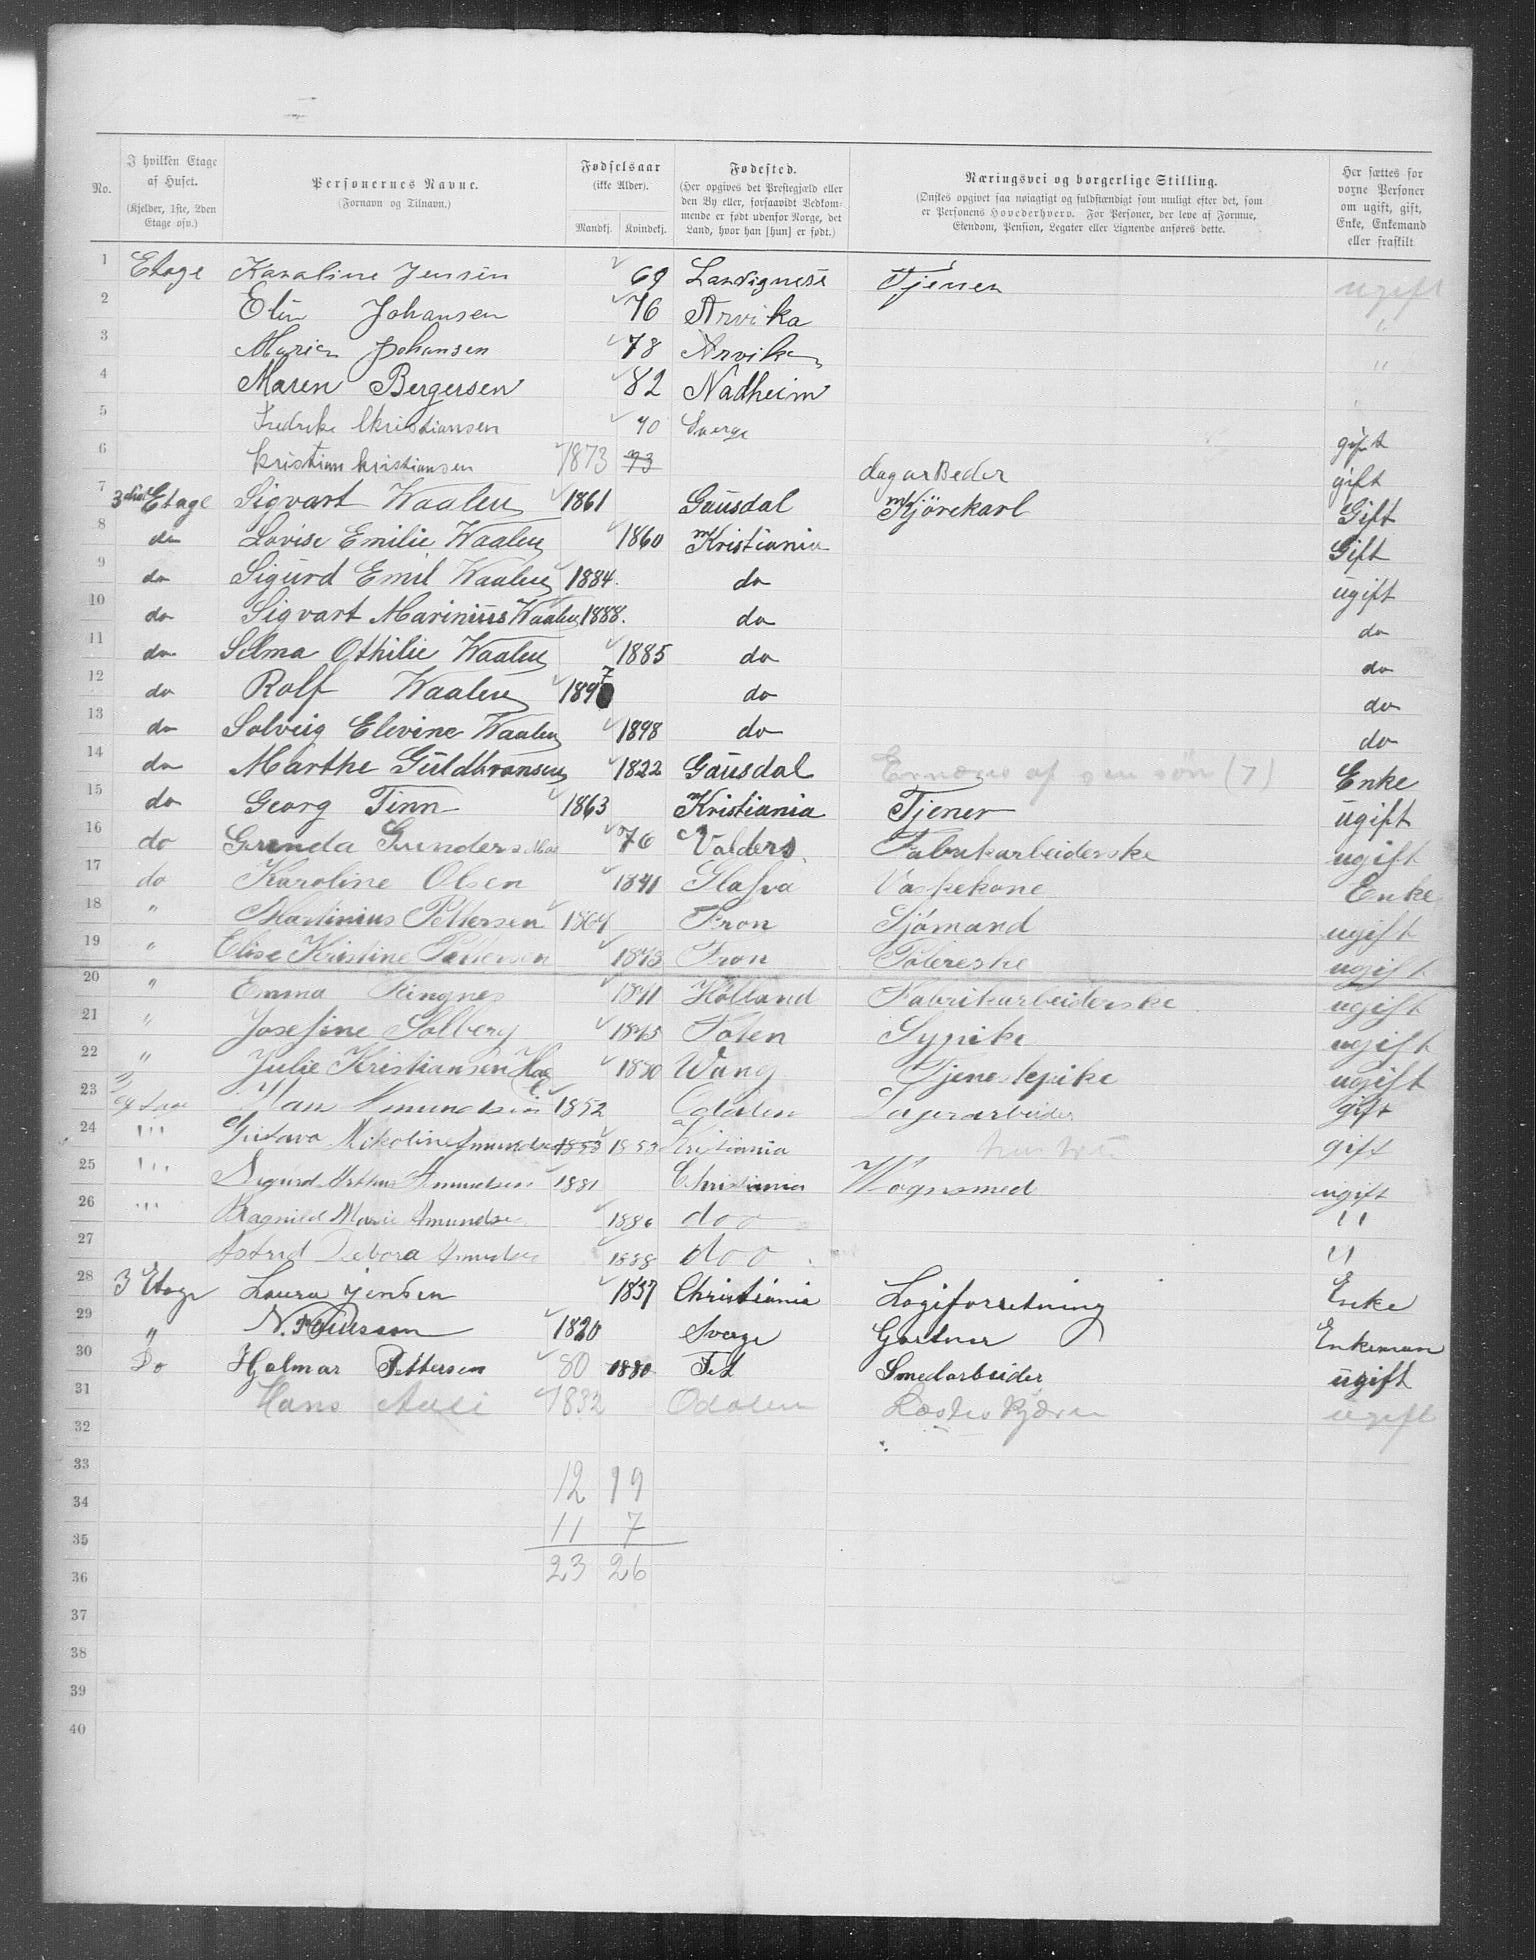 No.
I hvilken Etage af Huset. (Kjelder, 1ste, 2den Etage osv.)
Personernes Navne. (Fornavn og Tilnavn.)
Fødselsaar (ikke Alder). Mandkj. Kvindekj.
Fødested. (Her opgives det Prestegjæld eller den By eller, forsaavidt Vedkommende er født udenfor Norge, det Land, hvor han [hun] er født.)
Næringsvei og borgerlige Stilling. (Ønskes opgivet saa nøiagtigt og fuldstændigt som muligt efter det, som er Personens Hovederhverv. For Personer, der leve af Formue, Eiendom, Pension, Legater eller Lignende anføres dette.
Her sættes for voxne Personer om ugift, gift, Enke, Enkemand eller fraskilt
1 Etage Karaline Jensen 69 Tjener ugift
2 Elin Johansen 76 Arvika "
3 Maria Johansen 78 Arvika "
4 Maren Bergersen 82 Nadheim
5 Fredrike Christiansen 70 Sverge gift
6 kristian kristiansen 1873 73 dagarBeder gift
7 3die Etage Sigvart Waalen 1861 Gausdal Kjörekarl Gift
8 do Lovise Emilie Waalen 1860 Kristiania Gift
9 do Sigurd Emil Waalen 1884. do ugift
10 do Sigvart Marinius Waalen 1888. do do
11 do Selma Othilie Waalen 1885 do do
12 do Rolf Waalen 1897 do do
13 do Solveig Elevine Waalen 1898 do do
14 do Marthe Guldbransen 1822 Gausdal Ernæres af sin sön (7) Enke
15 do Georg Finn 1863 Kristiania Tjener ugift
16 do Gunda Gunders 76 Valders Fabrikarbeiderske ugift
17 do Karoline Olsen 1841 Glafva Vaskekone Enke
18 " Martinius Pettersen 1864 Fron Sjömand ugift
19 " Elise Kristine Pettersen 1873 Fron ugift
20 " Emma Ringnes 1871 Höland Fabrikarbeiderske ugift
21 " Josefine Solberg 1875 Toten Sypike ugift
22 " Julie Kristiansen 1880 Wang Tjenestepike ugift
23 Amundsen 1852 Odalen Lagerarbeider gift
24 "' Gustava Nikoline Amundsen 1853 1853 Kristiania gift
25 "' Sigurd Arthur Amundsen 1881 Christiania Vognsmed ugift
26 "' Ragnild Marie Amundsen 1886 do o "
27 Astrid Debora Amundsen 1888 do o "
28 3 Etage Laura Jensen 1837 Christiania Logiforretning Enke
29 " N. Poulsson 1820 Sverge Gartner Enkeman
30 Do Hjalmar Pettersen 80 1880 Fet Smedarbeider ugift
31 Hans 1832 Odalen ugift
32
33 12 19
34
35 11 7
36 23 26
37
38
39
40